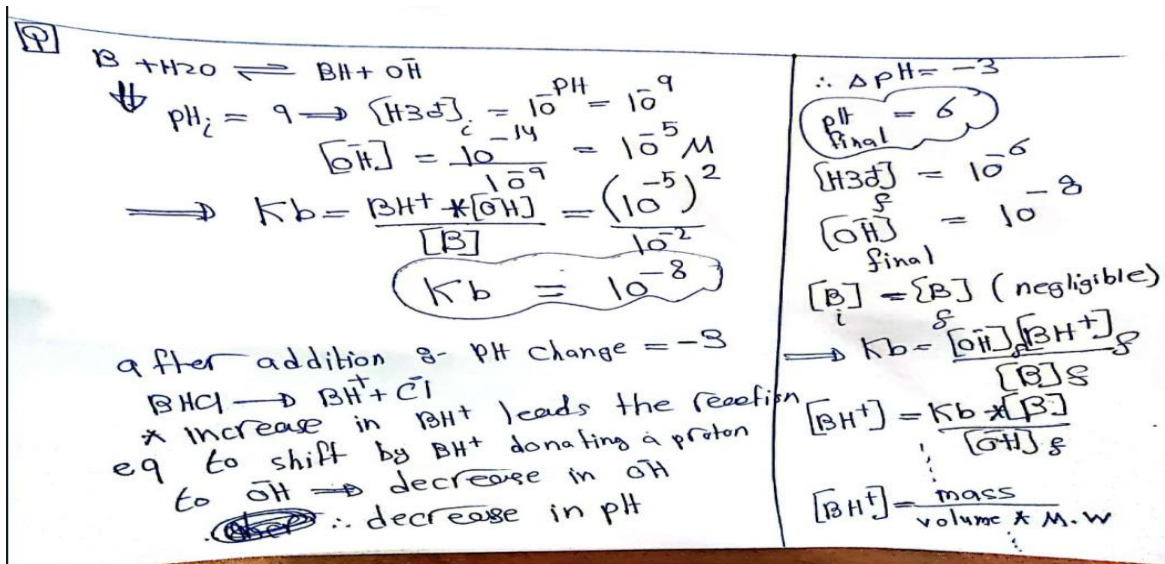 Q
B + H2O ⇌ BH + OH⁻
⇓ pHᵢ = 9 → [H3O⁺]ᵢ = 10^-PH = 10⁻⁹
[OH⁻] = 10⁻¹⁴ / 10⁻⁹ = 10⁻⁵ M
⟹ Kb = BH⁺ * [OH⁻] / [B] = (10⁻⁵)² / 10⁻²
Kb = 10⁻⁸
after addition 8- PH change = -3
BHCl → BH⁺ + Cl⁻
* increase in BH⁺ leads the reaction
eq to shift by BH⁺ donating a proton
to OH⁻ ⟹ decrease in OH⁻
∴ decrease in pH
∴ ΔpH = -3
pH final = 6
[H3O⁺]f = 10⁻⁶
[OH⁻] final = 10⁻⁸
[B]i = [B]f (negligible)
⟹ Kb = [OH⁻]f [BH⁺]f / [B]f
[BH⁺] = Kb * [B] / [OH⁻]f
[BH⁺] = mass / volume * M.W